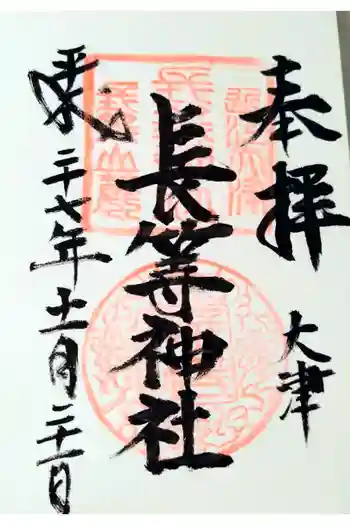 奉拝
大津
長等神社
平成二十七年十一月二十一日